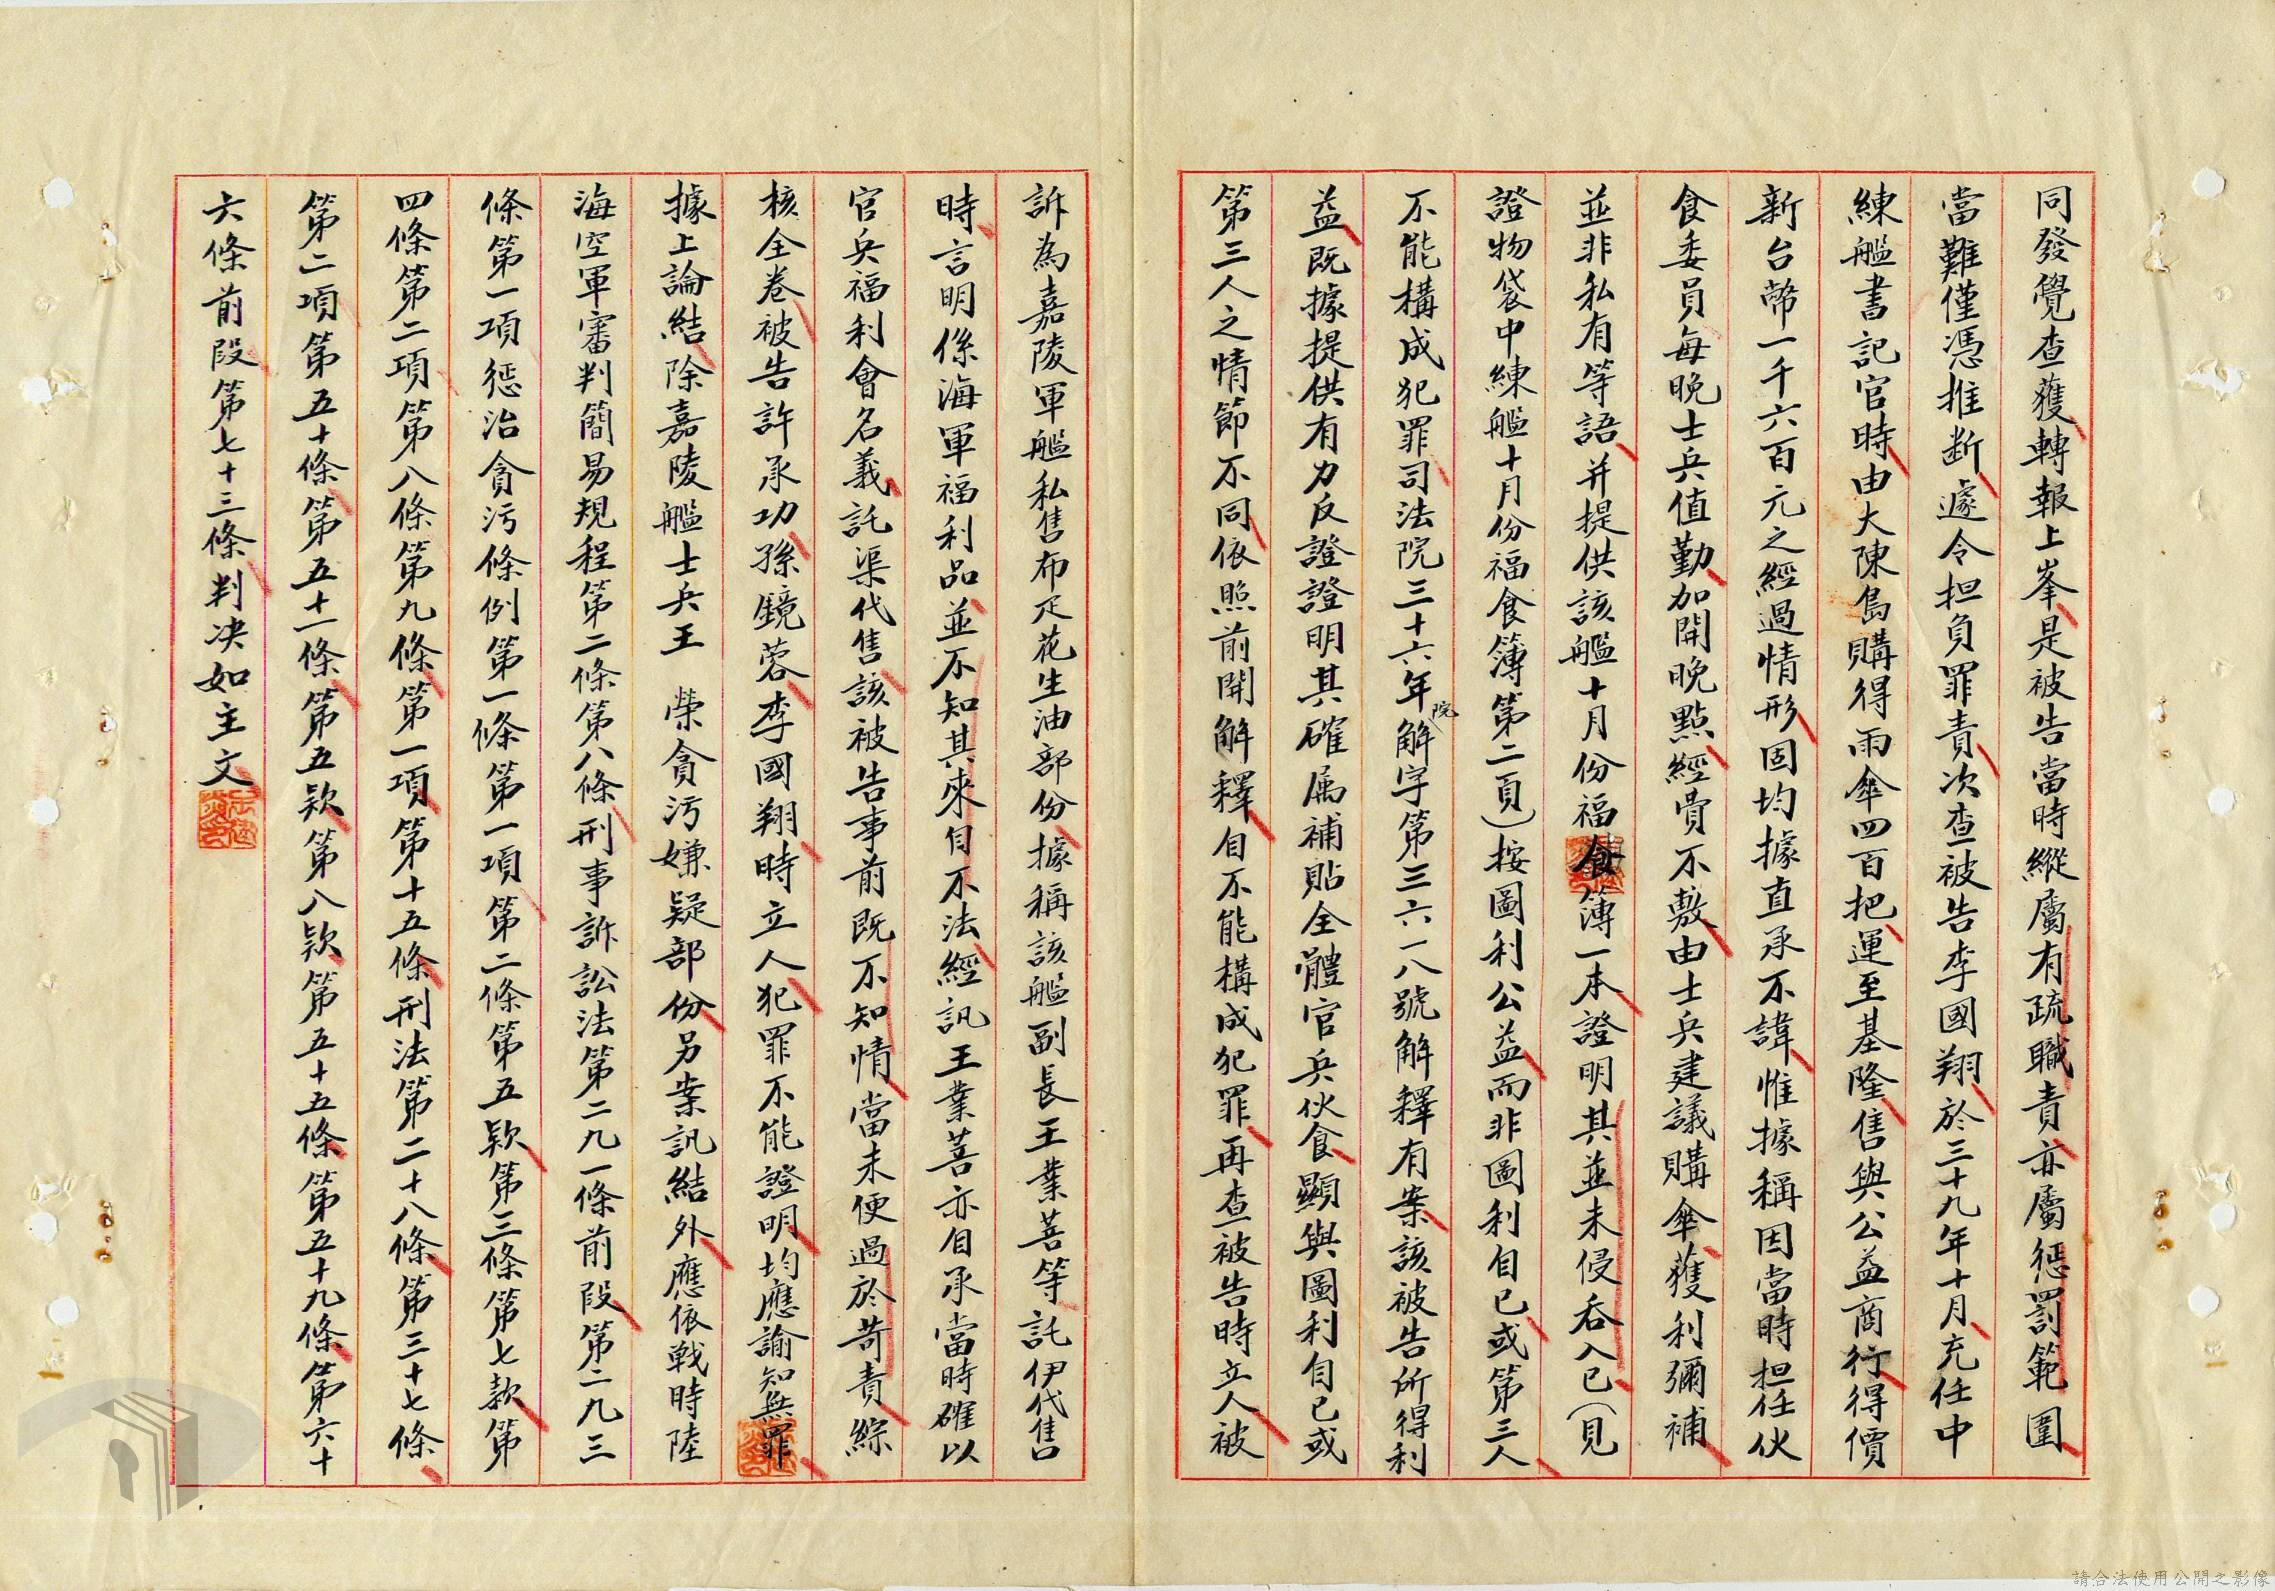 同發覺查獲轉報上峯是被告當時縱屬有疏職責亦屬懲罰範圍
當難僅憑推断遽令担負罪責次查被告李國翔於三十九年十月充任中
練艦書記官時由大陳島購得雨傘四百把運至基隆售與公益商行得價
新台幣一千六百元之經過情形固均據直承不諱惟據稱因當時担任伙
食委員每晚士兵值勤加開晚點經費不敷由士兵建議購傘獲利彌補
並非私有等語并提供該艦十月份福食簿一本證明其並未侵吞入己(見
證物袋中練艦十月份福食簿第二頁)按圖利公益而非圖利自己或第三人
不能構成犯罪司法院三十六年院解字第三六一八號解釋有案該被告所得利
益既據提供有力反證證明其確属補貼全體官兵伙食顯與圖利自己或
第三人之情節不同依照前開解釋自不能構成犯罪再查被告時立人被
訴為嘉陵軍艦私售布疋花生油部份據稱該艦副長王業菩等託伊代售
時言明係海軍福利品並不知其來自不法經訊王業菩亦自承當時確以
官兵福利會名義託渠代售該被告事前既不知情當未便過於苛責綜
核全卷被告許承功孫鏡蓉李國翔時立人犯罪不能證明均應諭知無罪
據上論結除嘉陵艦士兵王 榮貪污嫌疑部份另案訊結外應依戰時陸
海空軍審判簡易規程第二條第八條刑事訴訟法第二九一條前段第二九三
條第一項懲治貪污條例第一條第一項第二條第五款第三條第七款第
四條第二項第八條第九條第一項第十五條刑法第二十八條第三十七條
第二項第五十條第五十一條第五款第八款第五十五條第五十九條第六十
六條前段第七十三條判决如主文
請合法使用公開之影像